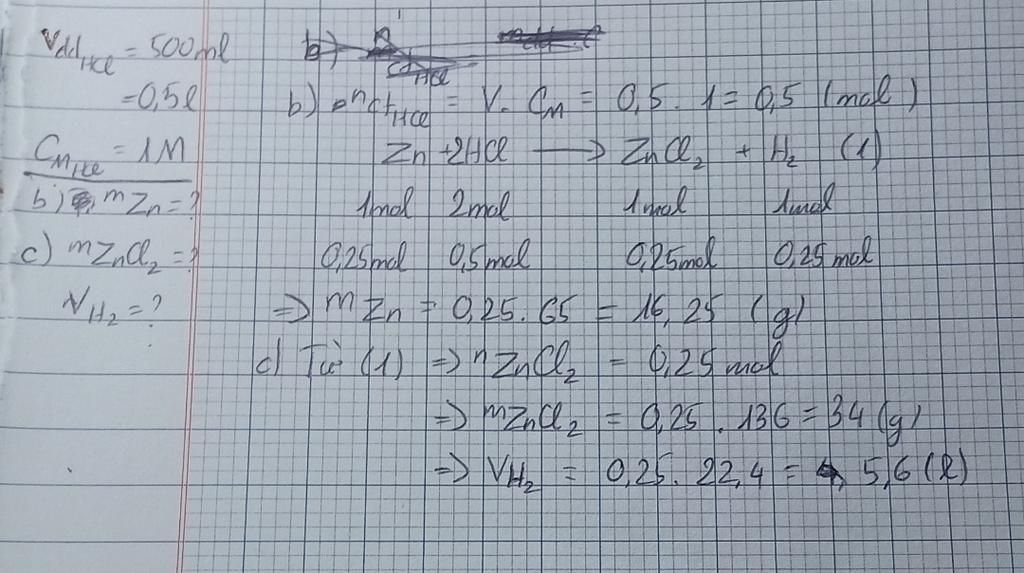 Vdd HCl = 500ml
= 0,5l
CM HCl = 1M
b) mZn = ?
c) mZnCl₂ = ?
VH₂ = ?
b) nct HCl = V. CM = 0,5 . 1 = 0,5 (mol)
Zn + 2HCl → ZnCl₂ + H₂ (1)
1mol 2mol 1mol 1mol
0,25mol 0,5mol 0,25mol 0,25mol
=> mZn = 0,25. 65 = 16,25 (g)
c) Từ (1) => nZnCl₂ = 0,25 mol
=> mZnCl₂ = 0,25 . 136 = 34 (g)
=> VH₂ = 0,25. 22,4 = 5,6 (l)